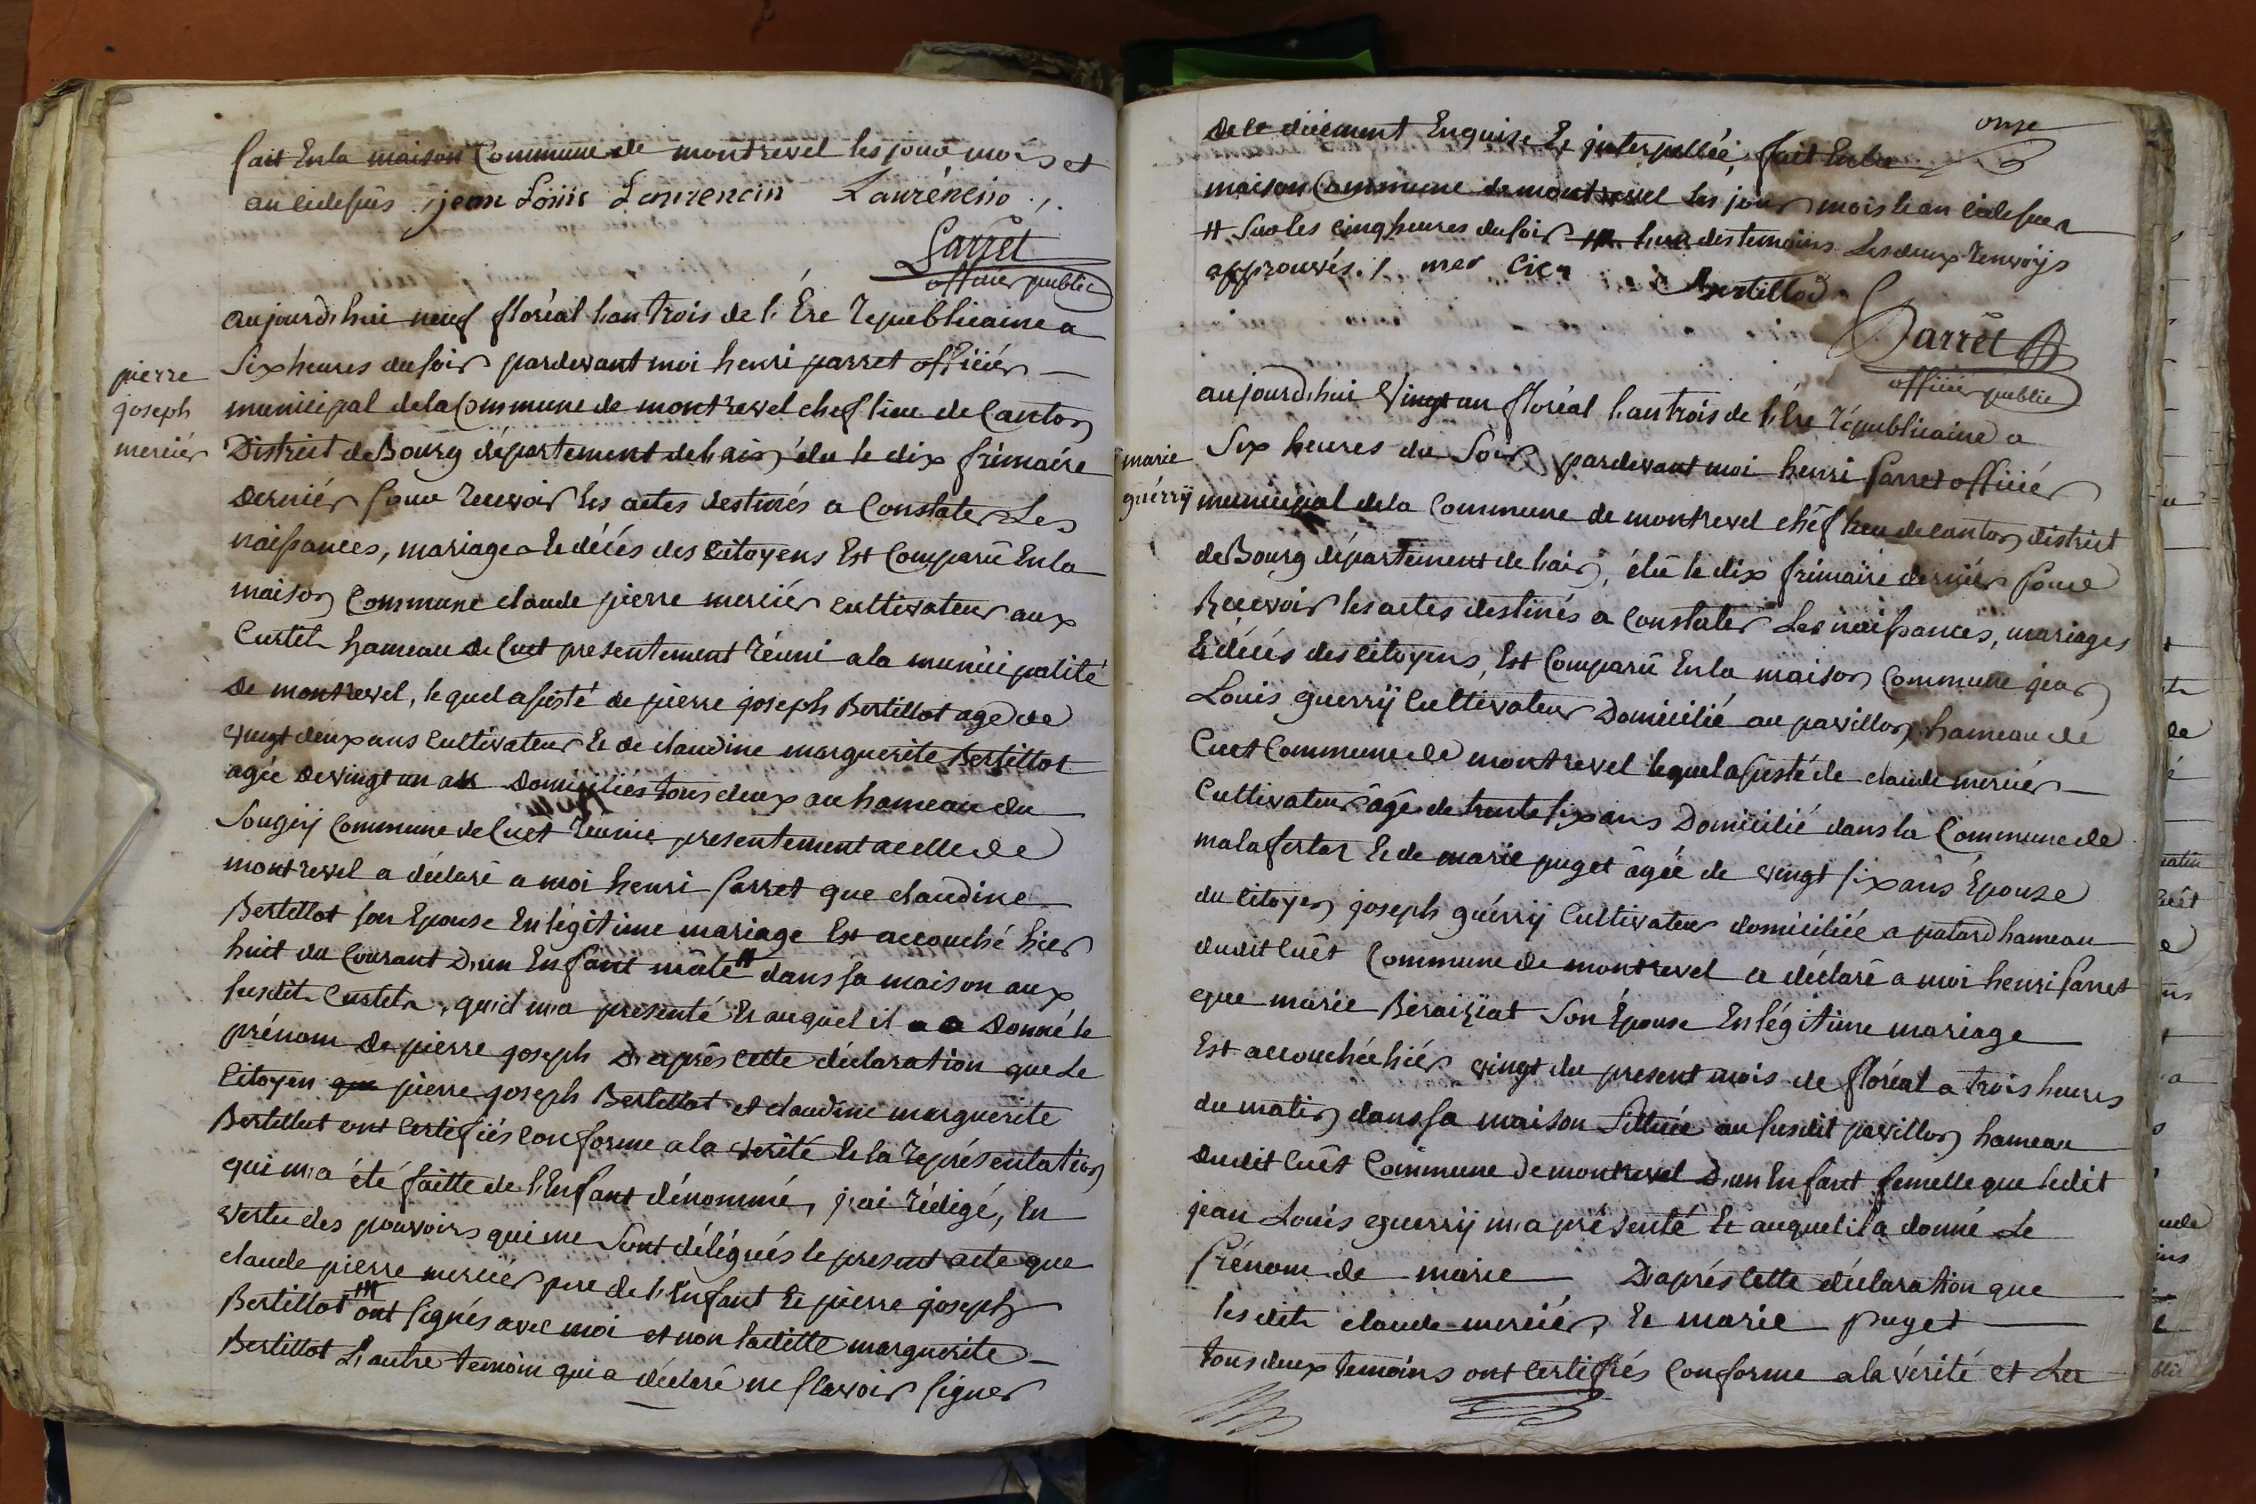 fait En la maison Commune de montrevel les jour mois et
an cidessus jean Loüis Laurencin Lauréncin ./.
Parret
officier public
aujourd'hui neuf floréal l'an trois de l'Ere republicaine a
Six heures du soir pardevant moi henri parret officiér
pierre
joseph
merciér
municipal de la Commune de montrevel chef lieu de Canton
District de Bourg département de l'ain élu le dix frimaire
Derniér pour recevoir les actes destinés a Constater Les
naissances, mariages Et décés des Citoyens Est Comparû En la
maison Commune claude pierre merciér cultivateur aux
Curtet hameau de Cuet presentement réuni a la municipalité
De montrevel, lequel assisté de pierre joseph Bertillot agé de
vingt deux ans Cultivateur Et de claudine marguerite Bertillot
agée De vingt un ans Domiciliés tous deux au hameau du
Sougéy Commune de Cuet reunie presentement a celle de
montrevel a déclaré a moi henri Parret que claudine
Bertillot son Epouse En légitime mariage Est accouché hier
huit du Courant D'un Enfant mâle # dans sa maison aux
susdits Curtets, qu'il m'a presenté Et auquel il a Donné le
prénom De pierre joseph D'aprés cette déclaration que Le
Citoyen que pierre joseph Bertillot et claudine marguerite
Bertillot ont certifiés conforme a la verité Et la représentation
qui m'a été faitte de l'Enfant dénommé, j'ai rédigé, En
vertu des pouvoirs qui me Sont délégués le present acte que
claude pierre merciér pere de l'Enfant Et pierre joseph
Bertillot ### ont signés avec moi et non laditte marguerite
Bertillot L'autre temoin qui a déclaré ne sçavoir signer
onze
De ce dûement Enquise Et jnterpellée, fait En la
maison Commune de montrevel les jour mois Et an cidessus
# Sur les cinq heures du soir ### l'un des temoins Les deux renvoys
approuvés ./. mer cier Bertillod
Parrêt
officier public
aujourd'hui Vingt un floréal l'an trois de l'Ere républicaine a
marie
guérrÿ
Six heures du Soir pardevant moi henri Parret officiér
municipal de la Commune de montrevel chéf lieu de canton district
de Bourg département de l'ain, élû le dix frimaire derniér pour
Recevoir les actes destinés a Constater Les naissances, mariages
Et décés des Citoyens, Est Comparû En la maison Commune jean
Louis guerrÿ Cultivateur Domicilié au pavillon hameau de
Cuet Commune de montrevel lequel assisté de claude merciér
Cultivateur âgé de trente six ans Domicilié dans la Commune de
malafertat Et de marie puget âgée de vingt six ans Epouse
du Citoyen joseph guérrÿ Cultivateur domiciliée a patard hameau
dudit Cuêt Commune de montrevel a déclaré a moi henri Parret
que marie Béraizïat Son Épouse En légitime mariage
Est accouchée hiér vingt du present mois de floréal a trois heures
du matin dans sa maison Sittuée au susdit pavillon hameau
dudit Cuêt Commune De montrevel D'un Enfant femelle que ledit
jean Louis guerrÿ m'a présenté Et auquel il a donné Le
Prénom de marie D'aprés cette déclaration que
lesdits claude merciér, Et marie puget
tous deux temoins ont certifiés Conforme a la vérité et La